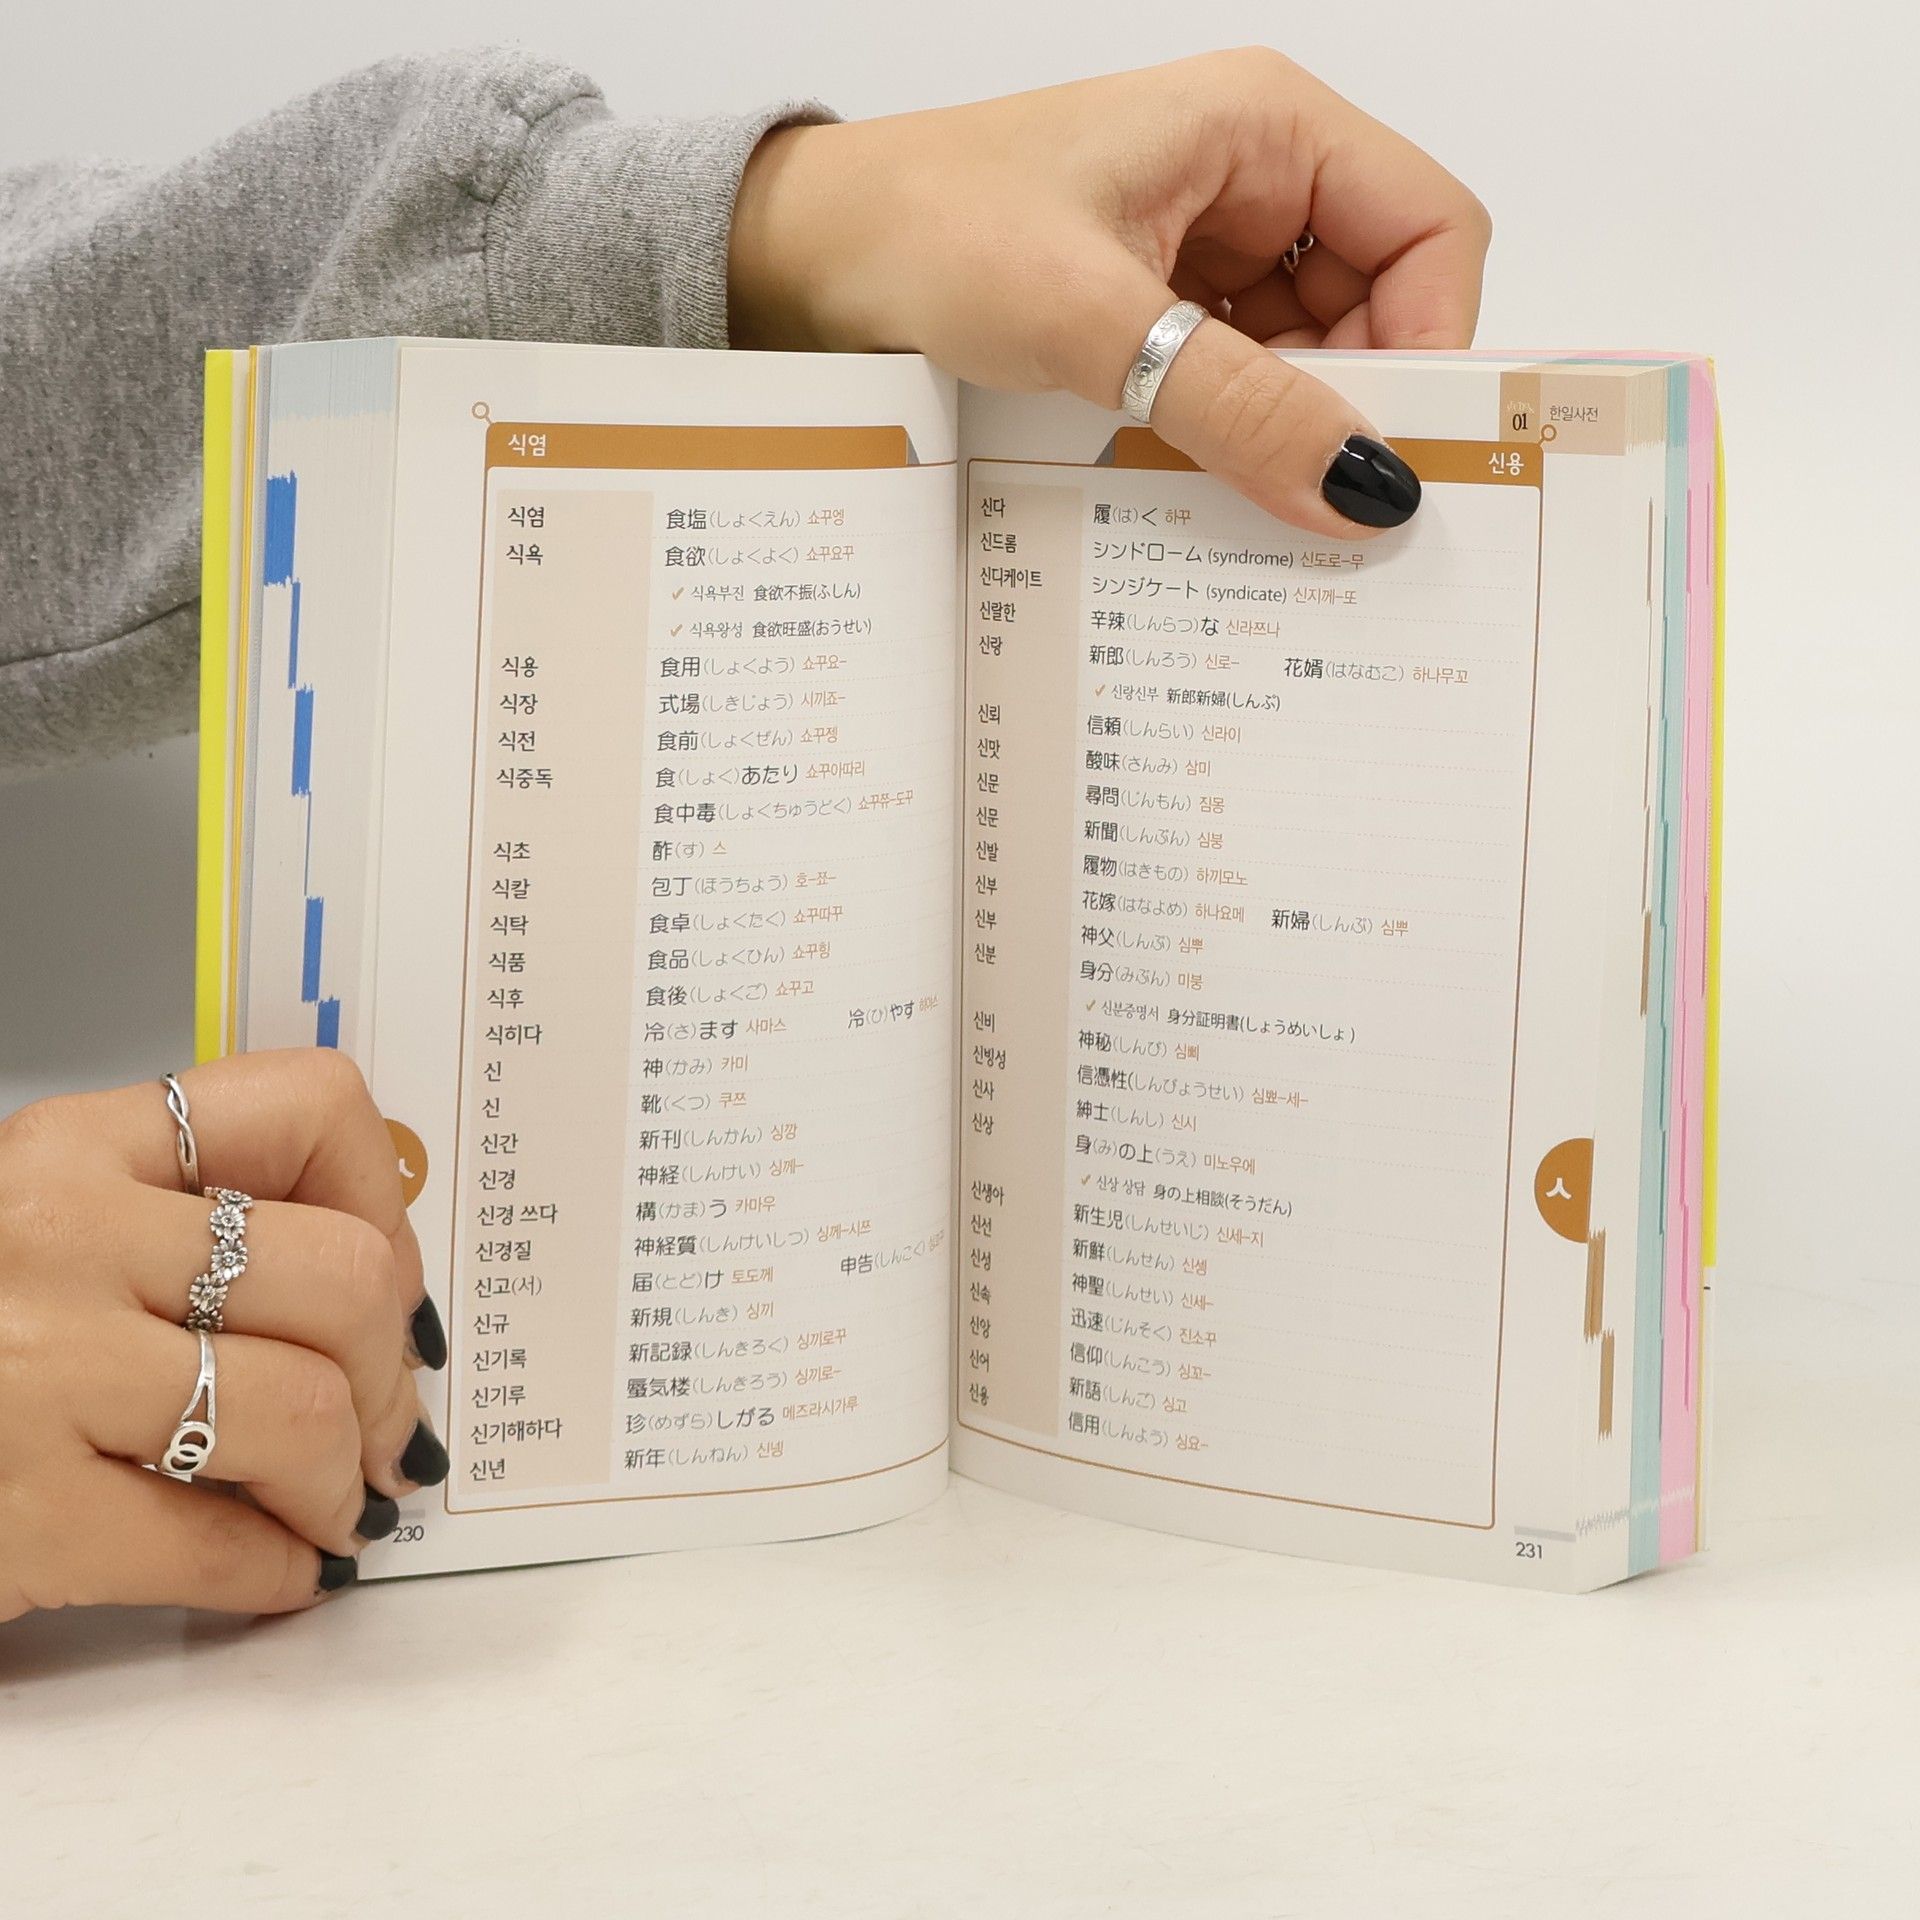 식염
식염 食塩(しょくえん) 쇼꾸엥
식욕 食欲(しょくよく) 쇼꾸요꾸
✓ 식욕부진 食欲不振(ふしん)
✓ 식욕왕성 食欲旺盛(おうせい)
식용 食用(しょくよう) 쇼꾸요-
식장 式場(しきじょう) 시끼죠-
식전 食前(しょくぜん) 쇼꾸젱
식중독 食(しょく)あたり 쇼꾸아따리
食中毒(しょくちゅうどく) 쇼꾸쮸-도꾸
식초 酢(す) 스
식칼 包丁(ほうちょう) 호-쬬-
식탁 食卓(しょくたく) 쇼꾸따꾸
식품 食品(しょくひん) 쇼꾸힝
식후 食後(しょくご) 쇼꾸고
식히다 冷(さ)ます 사마스 冷(ひ)やす 히야스
신 神(かみ) 카미
신 靴(くつ) 쿠쯔
신간 新刊(しんかん) 싱깡
신경 神経(しんけい) 싱께-
신경 쓰다 構(かま)う 카마우
신경질 神経質(しんけいしつ) 싱께-시쯔
신고(서) 届(とど)け 토도께 申告(しんこく)
신규 新規(しんき) 싱끼
신기록 新記録(しんきろく) 싱끼로꾸
신기루 蜃気楼(しんきろう) 싱끼로-
신기해하다 珍(めずら)しがる 메즈라시가루
신년 新年(しんねん) 신넹
230
01 한일사전
신용
신다 履(は)く 하꾸
신드롬 シンドローム (syndrome) 신도로-무
신디케이트 シンジケート (syndicate) 신지께-또
신랄한 辛辣(しんらつ)な 신라쯔나
신랑 新郎(しんろう) 신로- 花婿(はなむこ) 하나무꼬
✓ 신랑신부 新郎新婦(しんぷ)
신뢰 信頼(しんらい) 신라이
신맛 酸味(さんみ) 삼미
신문 尋問(じんもん) 짐몽
신문 新聞(しんぶん) 심붕
신발 履物(はきもの) 하끼모노
신부 花嫁(はなよめ) 하나요메 新婦(しんぷ) 심뿌
신부 神父(しんぷ) 심뿌
신분 身分(みぶん) 미붕
✓ 신분증명서 身分証明書(しょうめいしょ)
신비 神秘(しんぴ) 심삐
신빙성 信憑性(しんぴょうせい) 심뾰-세-
신사 紳士(しんし) 신시
신상 身(み)の上(うえ) 미노우에
✓ 신상 상담 身の上相談(そうだん)
신생아 新生児(しんせいじ) 신세-지
신선 新鮮(しんせん) 신셍
신성 神聖(しんせい) 신세-
신속 迅速(じんそく) 진소꾸
신앙 信仰(しんこう) 싱꼬-
신어 新語(しんご) 싱고
신용 信用(しんよう) 싱요-
ㅅ
231